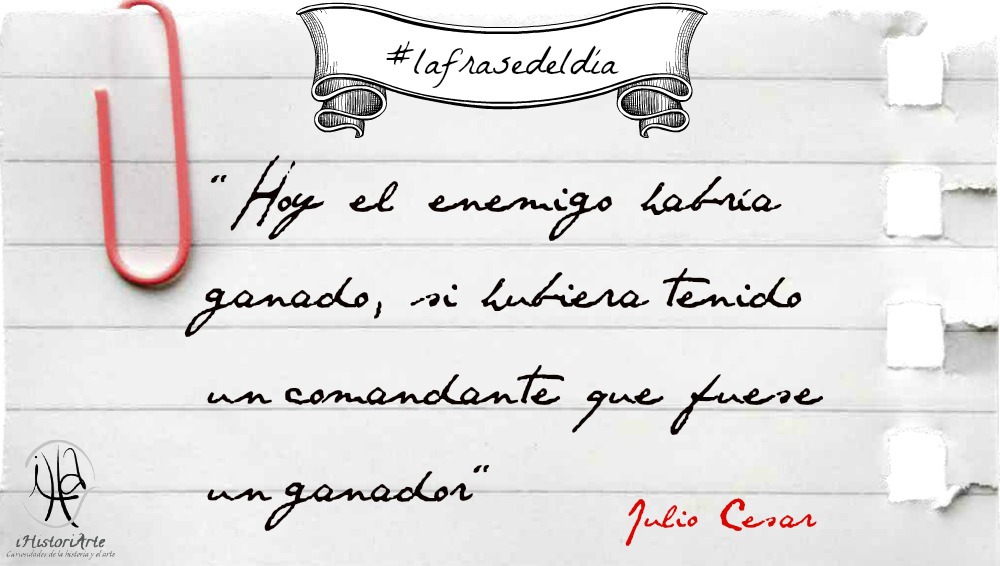 #lafrasedeldía
“Hoy el enemigo habría
ganado, si hubiera tenido
un comandante que fuese
un ganador“
Julio Cesar
iHistoriArte
Curiosidades de la historia y el arte